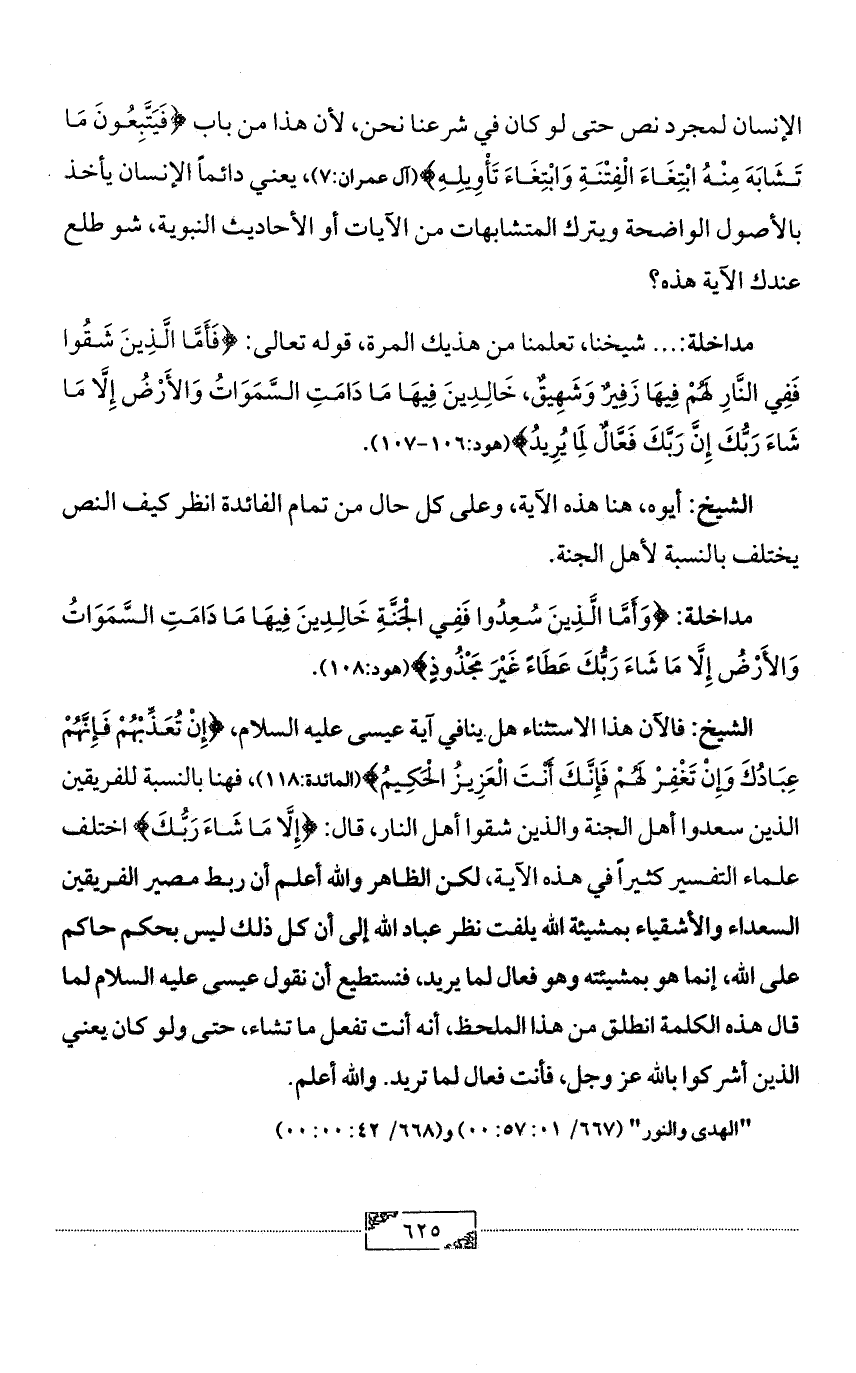 الإنسان لمجرد نص حتى لو كان في شرعنا نحن، لأن هذا من باب ﴿فَيَتَّبِعُونَ مَا
تَشَابَهَ مِنْهُ ابْتِغَاءَ الْفِتْنَةِ وَابْتِغَاءَ تَأْوِيلِهِ﴾(آل عمران:٧)، يعني دائماً الإنسان يأخذ
بالأصول الواضحة ويترك المتشابهات من الآيات أو الأحاديث النبوية، شو طلع
عندك الآية هذه؟
مداخلة:... شيخنا، تعلمنا من هذيك المرة، قوله تعالى: ﴿فَأَمَّا الَّذِينَ شَقُوا
فَفِي النَّارِ لَهُمْ فِيهَا زَفِيرٌ وَشَهِيقٌ، خَالِدِينَ فِيهَا مَا دَامَتِ السَّمَوَاتُ وَالأَرْضُ إِلَّا مَا
شَاءَ رَبُّكَ إِنَّ رَبَّكَ فَعَّالٌ لِمَا يُرِيدُ﴾(هود:١٠٦-١٠٧).
الشيخ: أيوه، هنا هذه الآية، وعلى كل حال من تمام الفائدة انظر كيف النص
يختلف بالنسبة لأهل الجنة.
مداخلة: ﴿وَأَمَّا الَّذِينَ سُعِدُوا فَفِي الجَنَّةِ خَالِدِينَ فِيهَا مَا دَامَتِ السَّمَوَاتُ
وَالأَرْضُ إِلَّا مَا شَاءَ رَبُّكَ عَطَاءً غَيْرَ مَجْذُوذٍ﴾(هود:١٠٨).
الشيخ: فالآن هذا الاستثناء هل ينافي آية عيسى عليه السلام، ﴿إِنْ تُعَذِّبْهُمْ فَإِنَّهُمْ
عِبَادُكَ وَإِنْ تَغْفِرْ لَهُمْ فَإِنَّكَ أَنْتَ الْعَزِيزُ الحَكِيمُ﴾(المائدة:١١٨)، فهنا بالنسبة للفريقين
الذين سعدوا أهل الجنة والذين شقوا أهل النار، قال: ﴿إِلَّا مَا شَاءَ رَبُّكَ﴾ اختلف
علماء التفسير كثيراً في هذه الآية، لكن الظاهر والله أعلم أن ربط مصير الفريقين
السعداء والأشقياء بمشيئة الله يلفت نظر عباد الله إلى أن كل ذلك ليس بحكم حاكم
على الله، إنما هو بمشيئته وهو فعال لما يريد، فنستطيع أن نقول عيسى عليه السلام لما
قال هذه الكلمة انطلق من هذا الملحظ، أنه أنت تفعل ما تشاء، حتى ولو كان يعني
الذين أشركوا بالله عز وجل، فأنت فعال لما تريد. والله أعلم.
"الهدى والنور" (٦٦٧/ ٠١ :٥٧ :٠٠) و(٦٦٨/ ٤٢ :٠٠ :٠٠)
٦٢٥